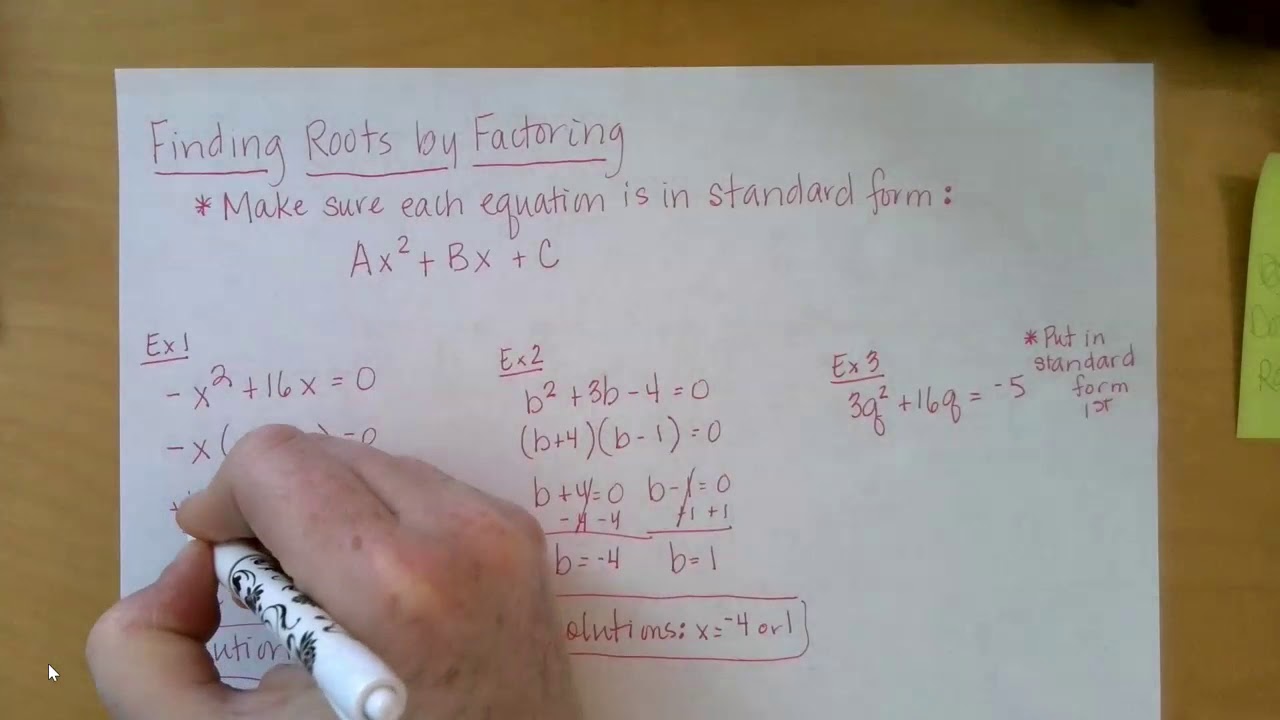 Finding Roots by Factoring
* Make sure each equation is in standard form:
Ax² + Bx + C
Ex 1
-x² + 16x = 0
-x (
Ex 2
b² + 3b - 4 = 0
(b+4)(b-1) = 0
b+4=0 b-1=0
-4 -4 +1 +1
b = -4 b = 1
olutions: x = -4 or 1
Ex 3
3q² + 16q = -5
* Put in
standard
form
1st